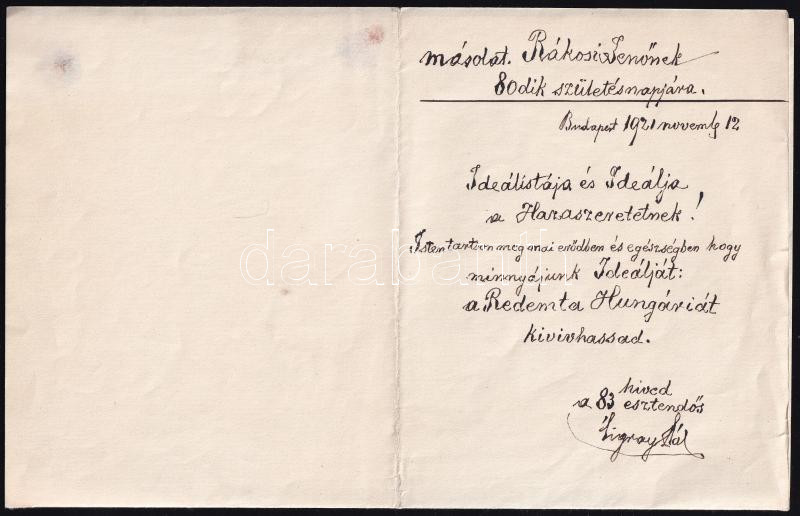 másolat. Rákosi Jenőnek
80dik születésnapjára.
Budapest 1921 novemb 12
Ideálistája és Ideálja
a Hazaszeretetnek!
Isten tartson meg mai erődben és egészségben hogy
minnyájunk Ideálját:
a Redemta Hungáriát
kivivhassad.
hived
a 83 esztendős
Zigray Pál
darabanth